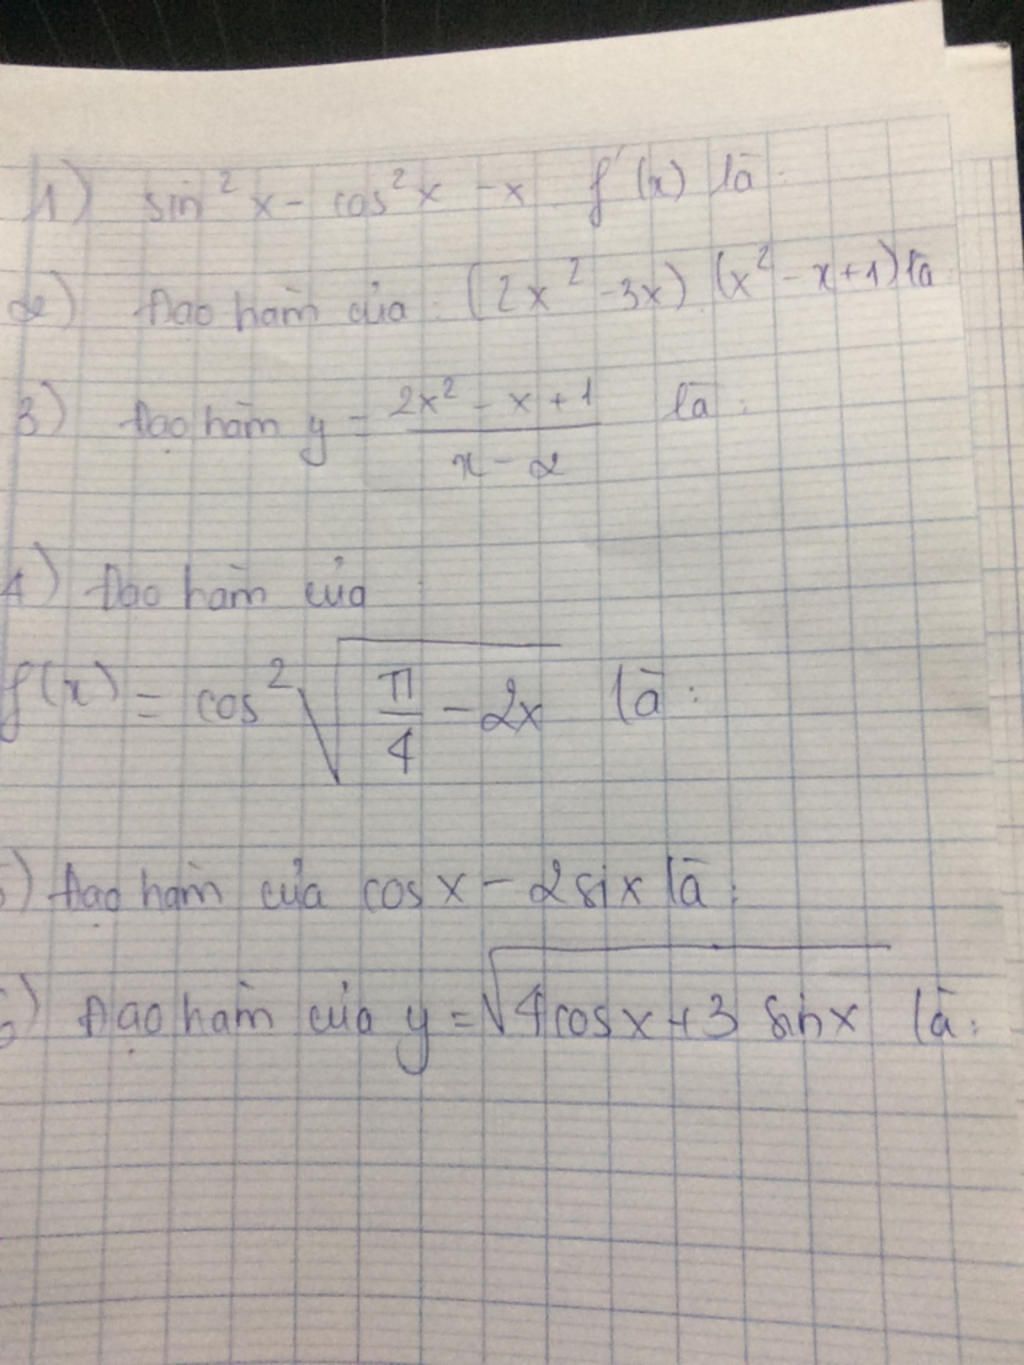 1) sin²x - cos²x - x f'(x) là:
2) Đạo hàm của: (2x² - 3x).(x² - x + 1) là
3) Đạo hàm y = (2x² - x + 1)/(x - 2) là:
4) Đạo hàm của :
f(x) = cos²√(π/4 - 2x) là:
5) Đạo hàm của cosx - 2six là:
6) Đạo hàm của y = √(4cosx + 3 sinx) là: